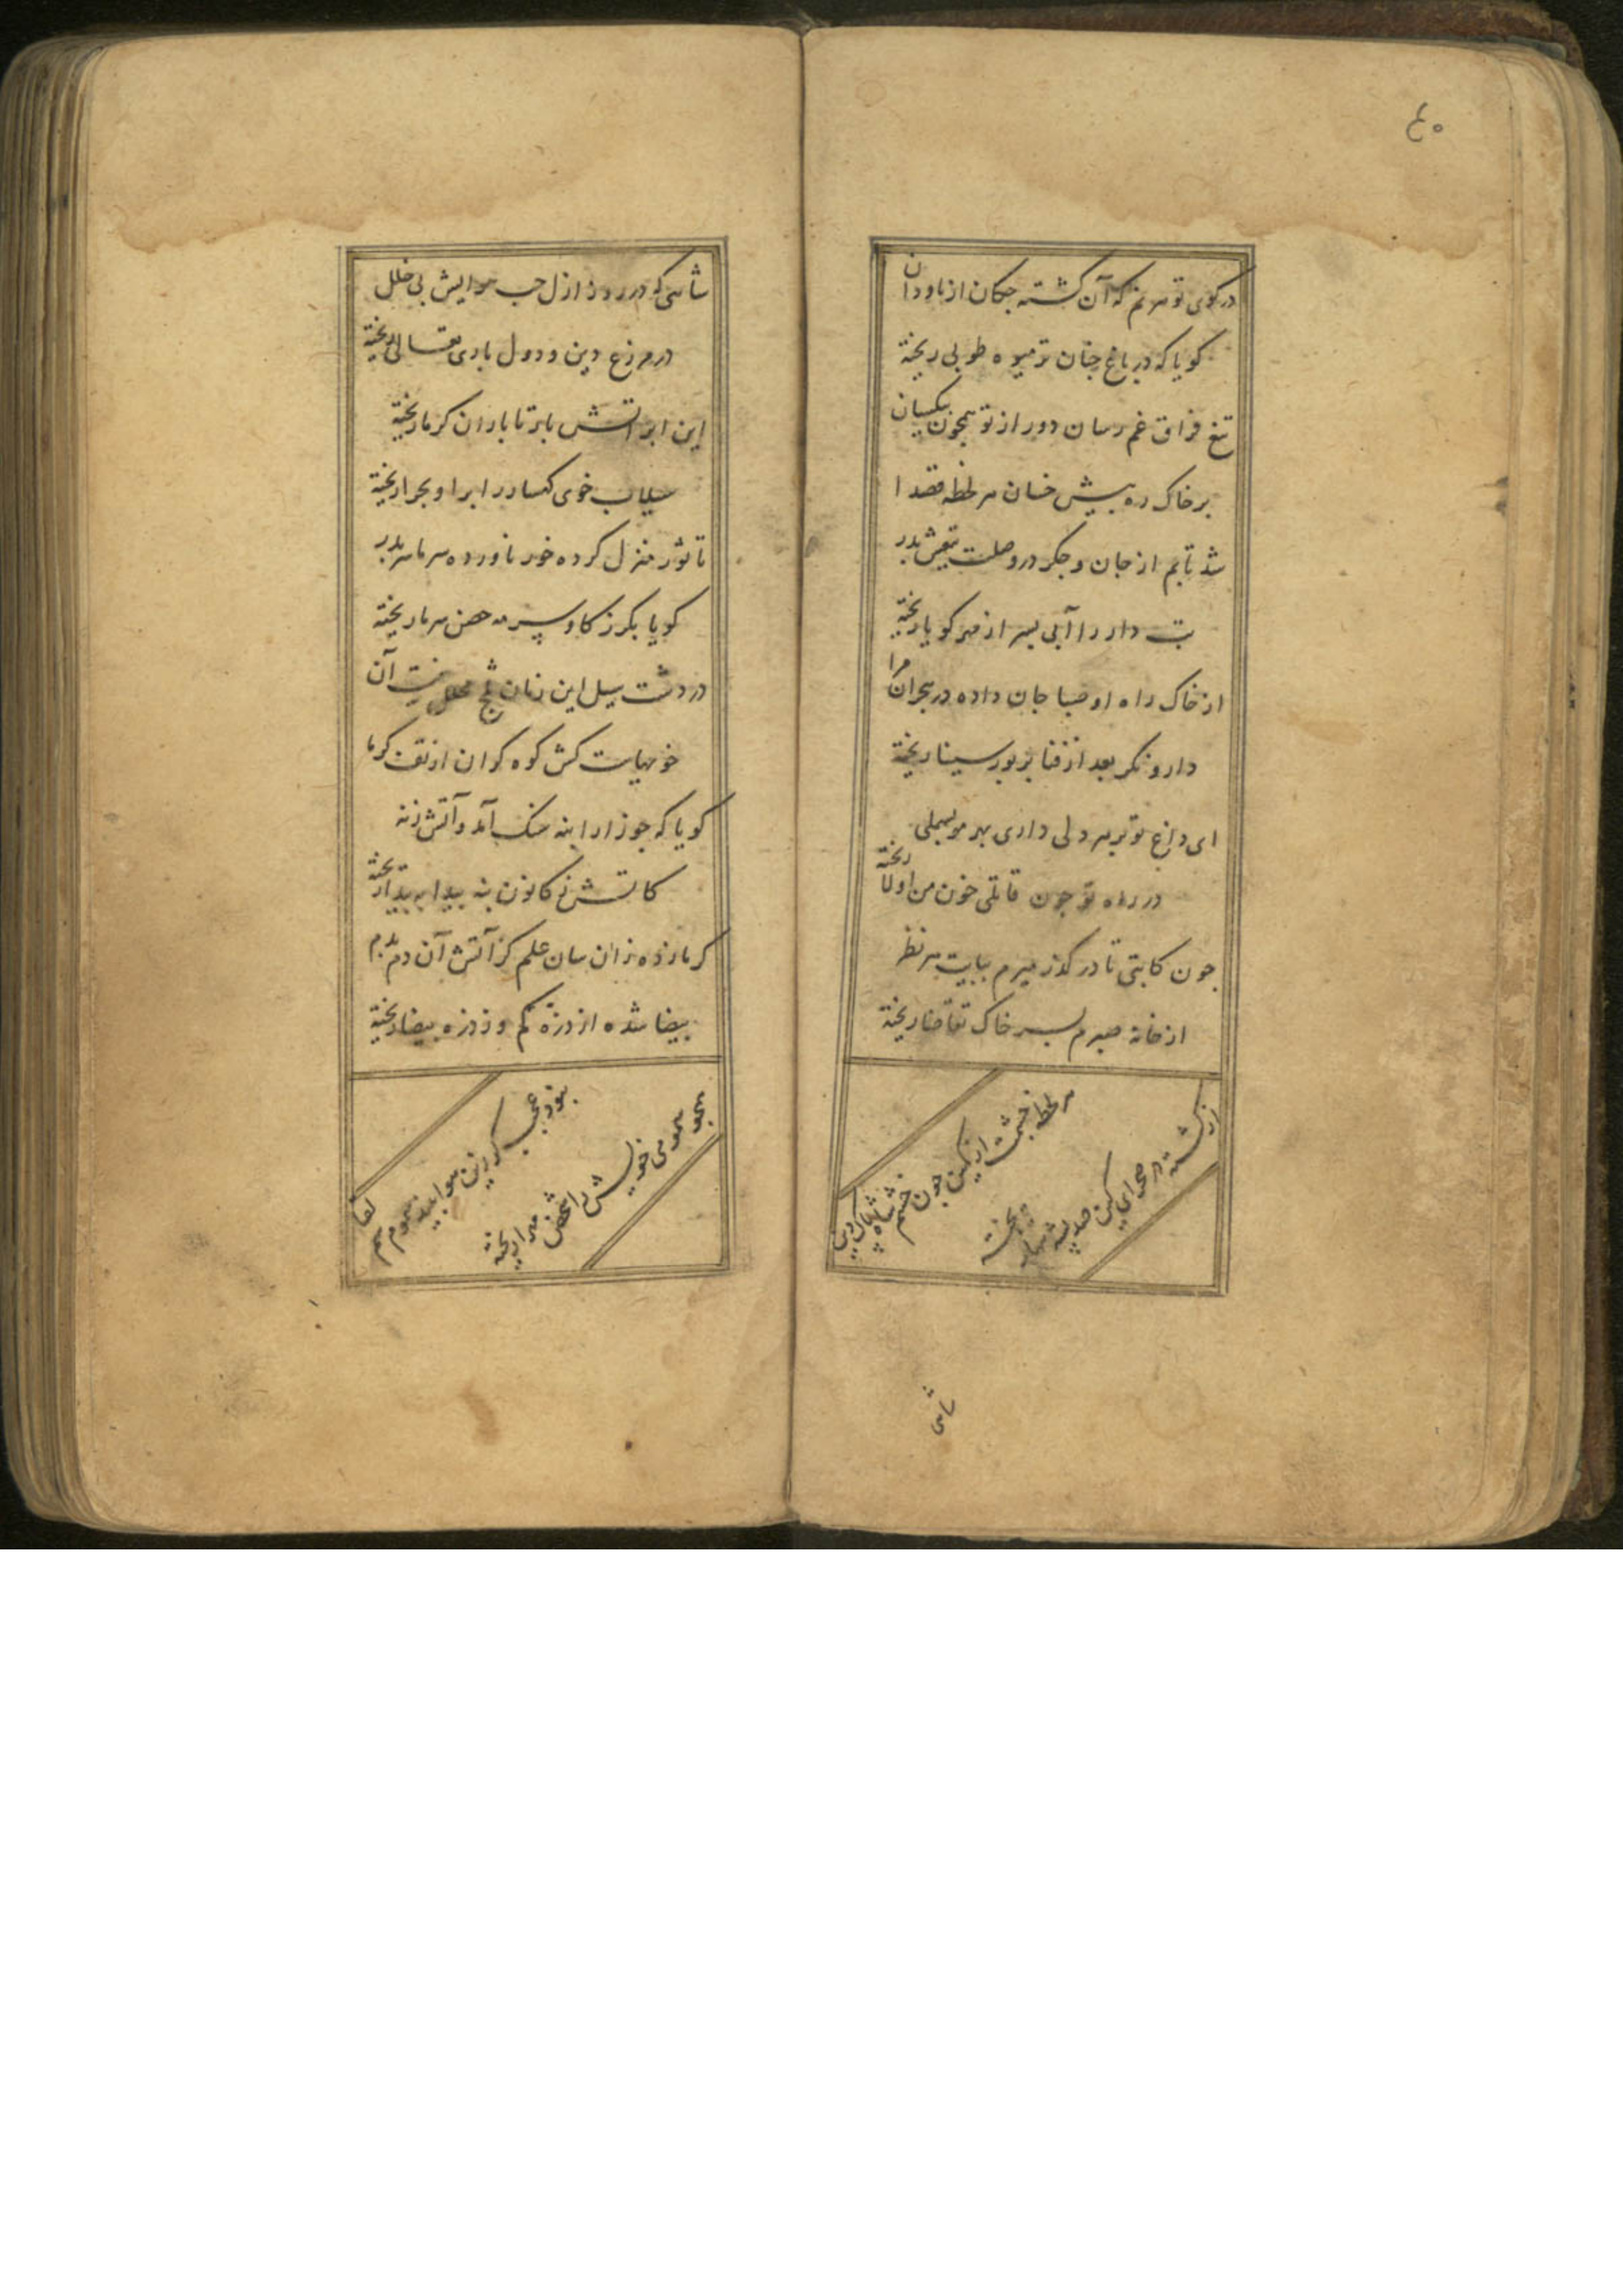 ۴۰
در کوی تو سر نم که آن گشته چکان از ناودان
کویا که در باغ جنان تر میوه طوبی ریخته
تیغ فراق غم رسان دور از تو همچون بیکسان
بر خاک ره پیش خسان هر لحظه قصدا
شد تابم از جان و جکر در وصلت تیغش بدر
دار را آبی بسر از مهر کویا ریخته
از خاک راه او صبا جان داده در هجران مرا
دارو نکر بعد از فنا بر پور سینا ریخته
ای داغ تو بر هر دلی داری بهر مو بسملی
در راه تو چون قاتلی خون من اولا ریخته
چون کابتی تا در کذر میرم ببایت هر نظر
از خانه صبرم بسر خاک تقاضا ریخته
هر لحظه خشمت از کمین چون خشم شاه پاک دین
از کشته در صحرای کین صد پشته ریخته
شاهی
شاهی که در روز ازل حب هوایش بی خلل
در مزرع دین و دول باری تعالی ریخته
این ابر آتش بار تا باران کرما ریخته
سیلاب خوی کهسار در ابر او بحرا ریخته
تا ثور منزل کرده خور ناورده سرما سر بدر
کویا بکرز کاو سر مه حصن سرما ریخته
در دشت سیل این زمان یخ آن
خونهاست کش کوه کران از تف کرما
کویا که جوزا را بنه سنک آمد و آتش زنه
کاتش ز کانون بنه پیدا به بیدا ریخته
کرما زده زان سان علم کز آتش آن دم بدم
بیضا شده از ذره کم وز ذره بیضا ریخته
نبود عجب کر زین هوا بیند سموم هم لقا
همچو موی خویش را شخص ریخته